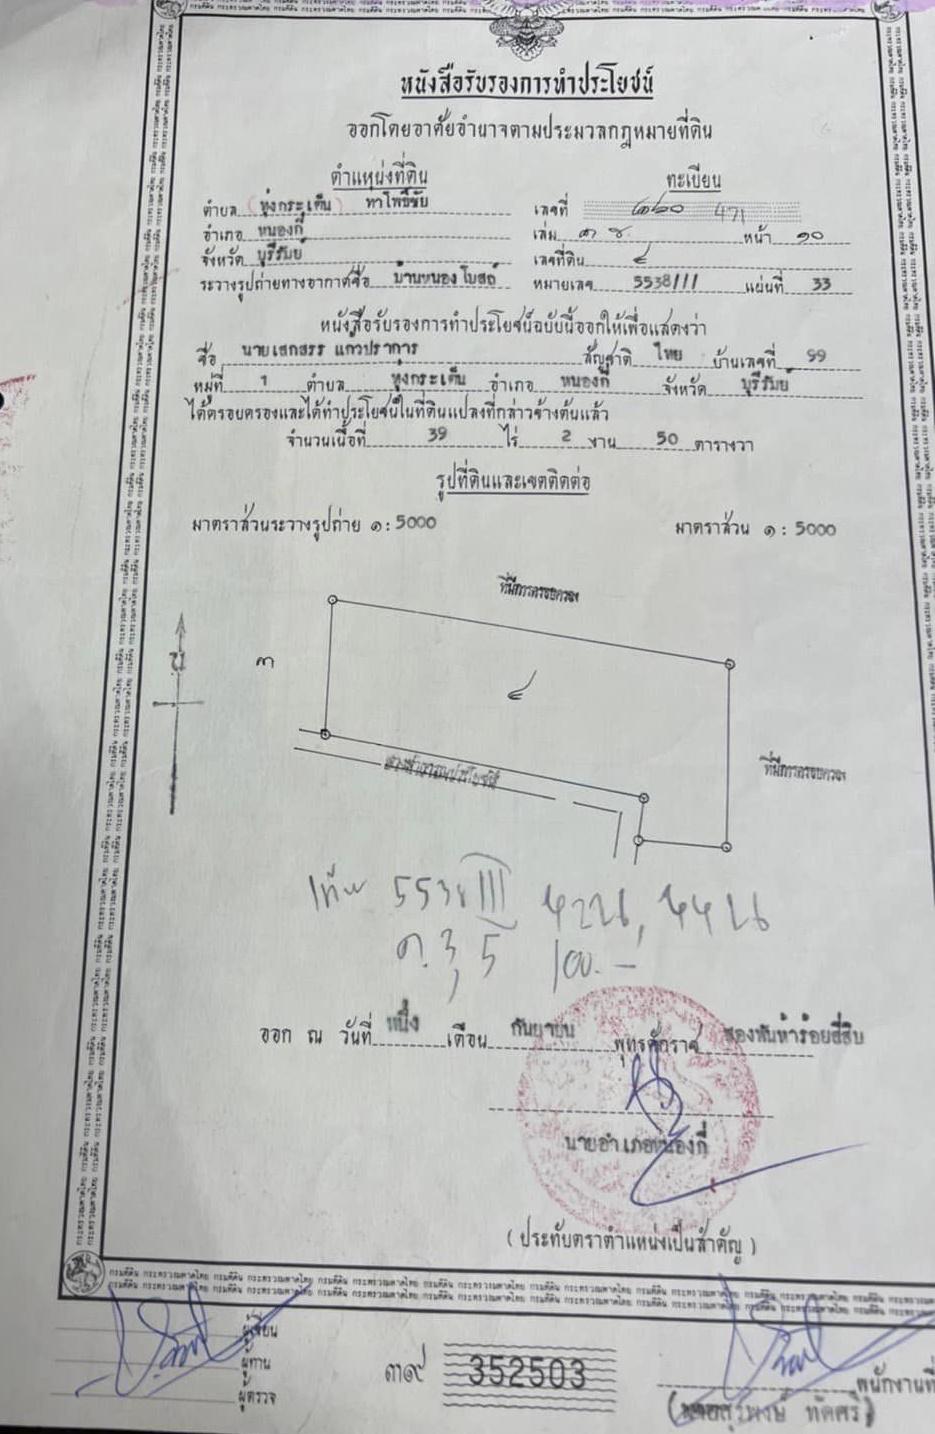 หนังสือรับรองการทำประโยชน์
ออกโดยอาศัยอำนาจตามประมวลกฎหมายที่ดิน
ตำแหน่งที่ดิน
ทะเบียน
ตำบล (ทุ่งกระเต็น) ท่าโพธิ์ชัย
เลขที่ ๔๒๐ 471
อำเภอ หนองกี่
เล่ม ๓ หน้า ๑๐
จังหวัด บุรีรัมย์
เลขที่ดิน ๔
ระวางรูปถ่ายทางอากาศชื่อ บ้านหนองโบสถ์ หมายเลข 5538/// แผ่นที่ 33
หนังสือรับรองการทำประโยชน์ฉบับนี้ออกให้เพื่อแสดงว่า
ชื่อ นายเสกสรร แก้วปราการ สัญชาติ ไทย บ้านเลขที่ 99
หมู่ที่ 1 ตำบล ทุ่งกระเต็น อำเภอ หนองกี่ จังหวัด บุรีรัมย์
ได้ครอบครองและได้ทำประโยชน์ในที่ดินแปลงที่กล่าวข้างต้นแล้ว
จำนวนเนื้อที่ 39 ไร่ 2 งาน 50 ตารางวา
รูปที่ดินและเขตติดต่อ
มาตราส่วนระวางรูปถ่าย ๑ : 5000
มาตราส่วน ๑ : 5000
ที่มีการครอบครอง
น
๓
๔
ทางสาธารณประโยชน์
ที่มีการครอบครอง
5538 III
100.-
ออก ณ วันที่ หนึ่ง เดือน กันยายน พุทธศักราช สองพันห้าร้อยสี่สิบ
นายอำเภอหนองกี่
(ประทับตราตำแหน่งเป็นสำคัญ)
ผู้เขียน
ผู้ทาน
ผู้ตรวจ
๓๑๙ 352503
พนักงานที่
(นายสุรพงษ์ ทัดศรี)